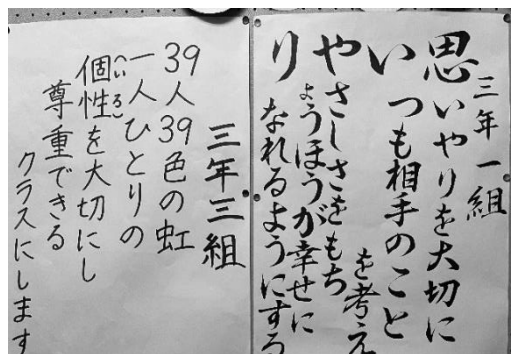 三年一組
思いやりを大切に
いつも相手のこと
を考え
やさしさをもち
りょうほうが幸せに
なれるようにする
三年三組
39人39色の虹
一人ひとりの
個性を大切にし
尊重できる
クラスにします